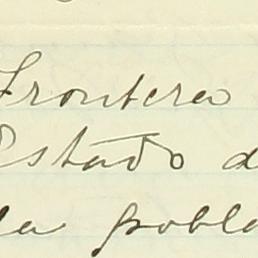 Frontera
Estado d
la pobla